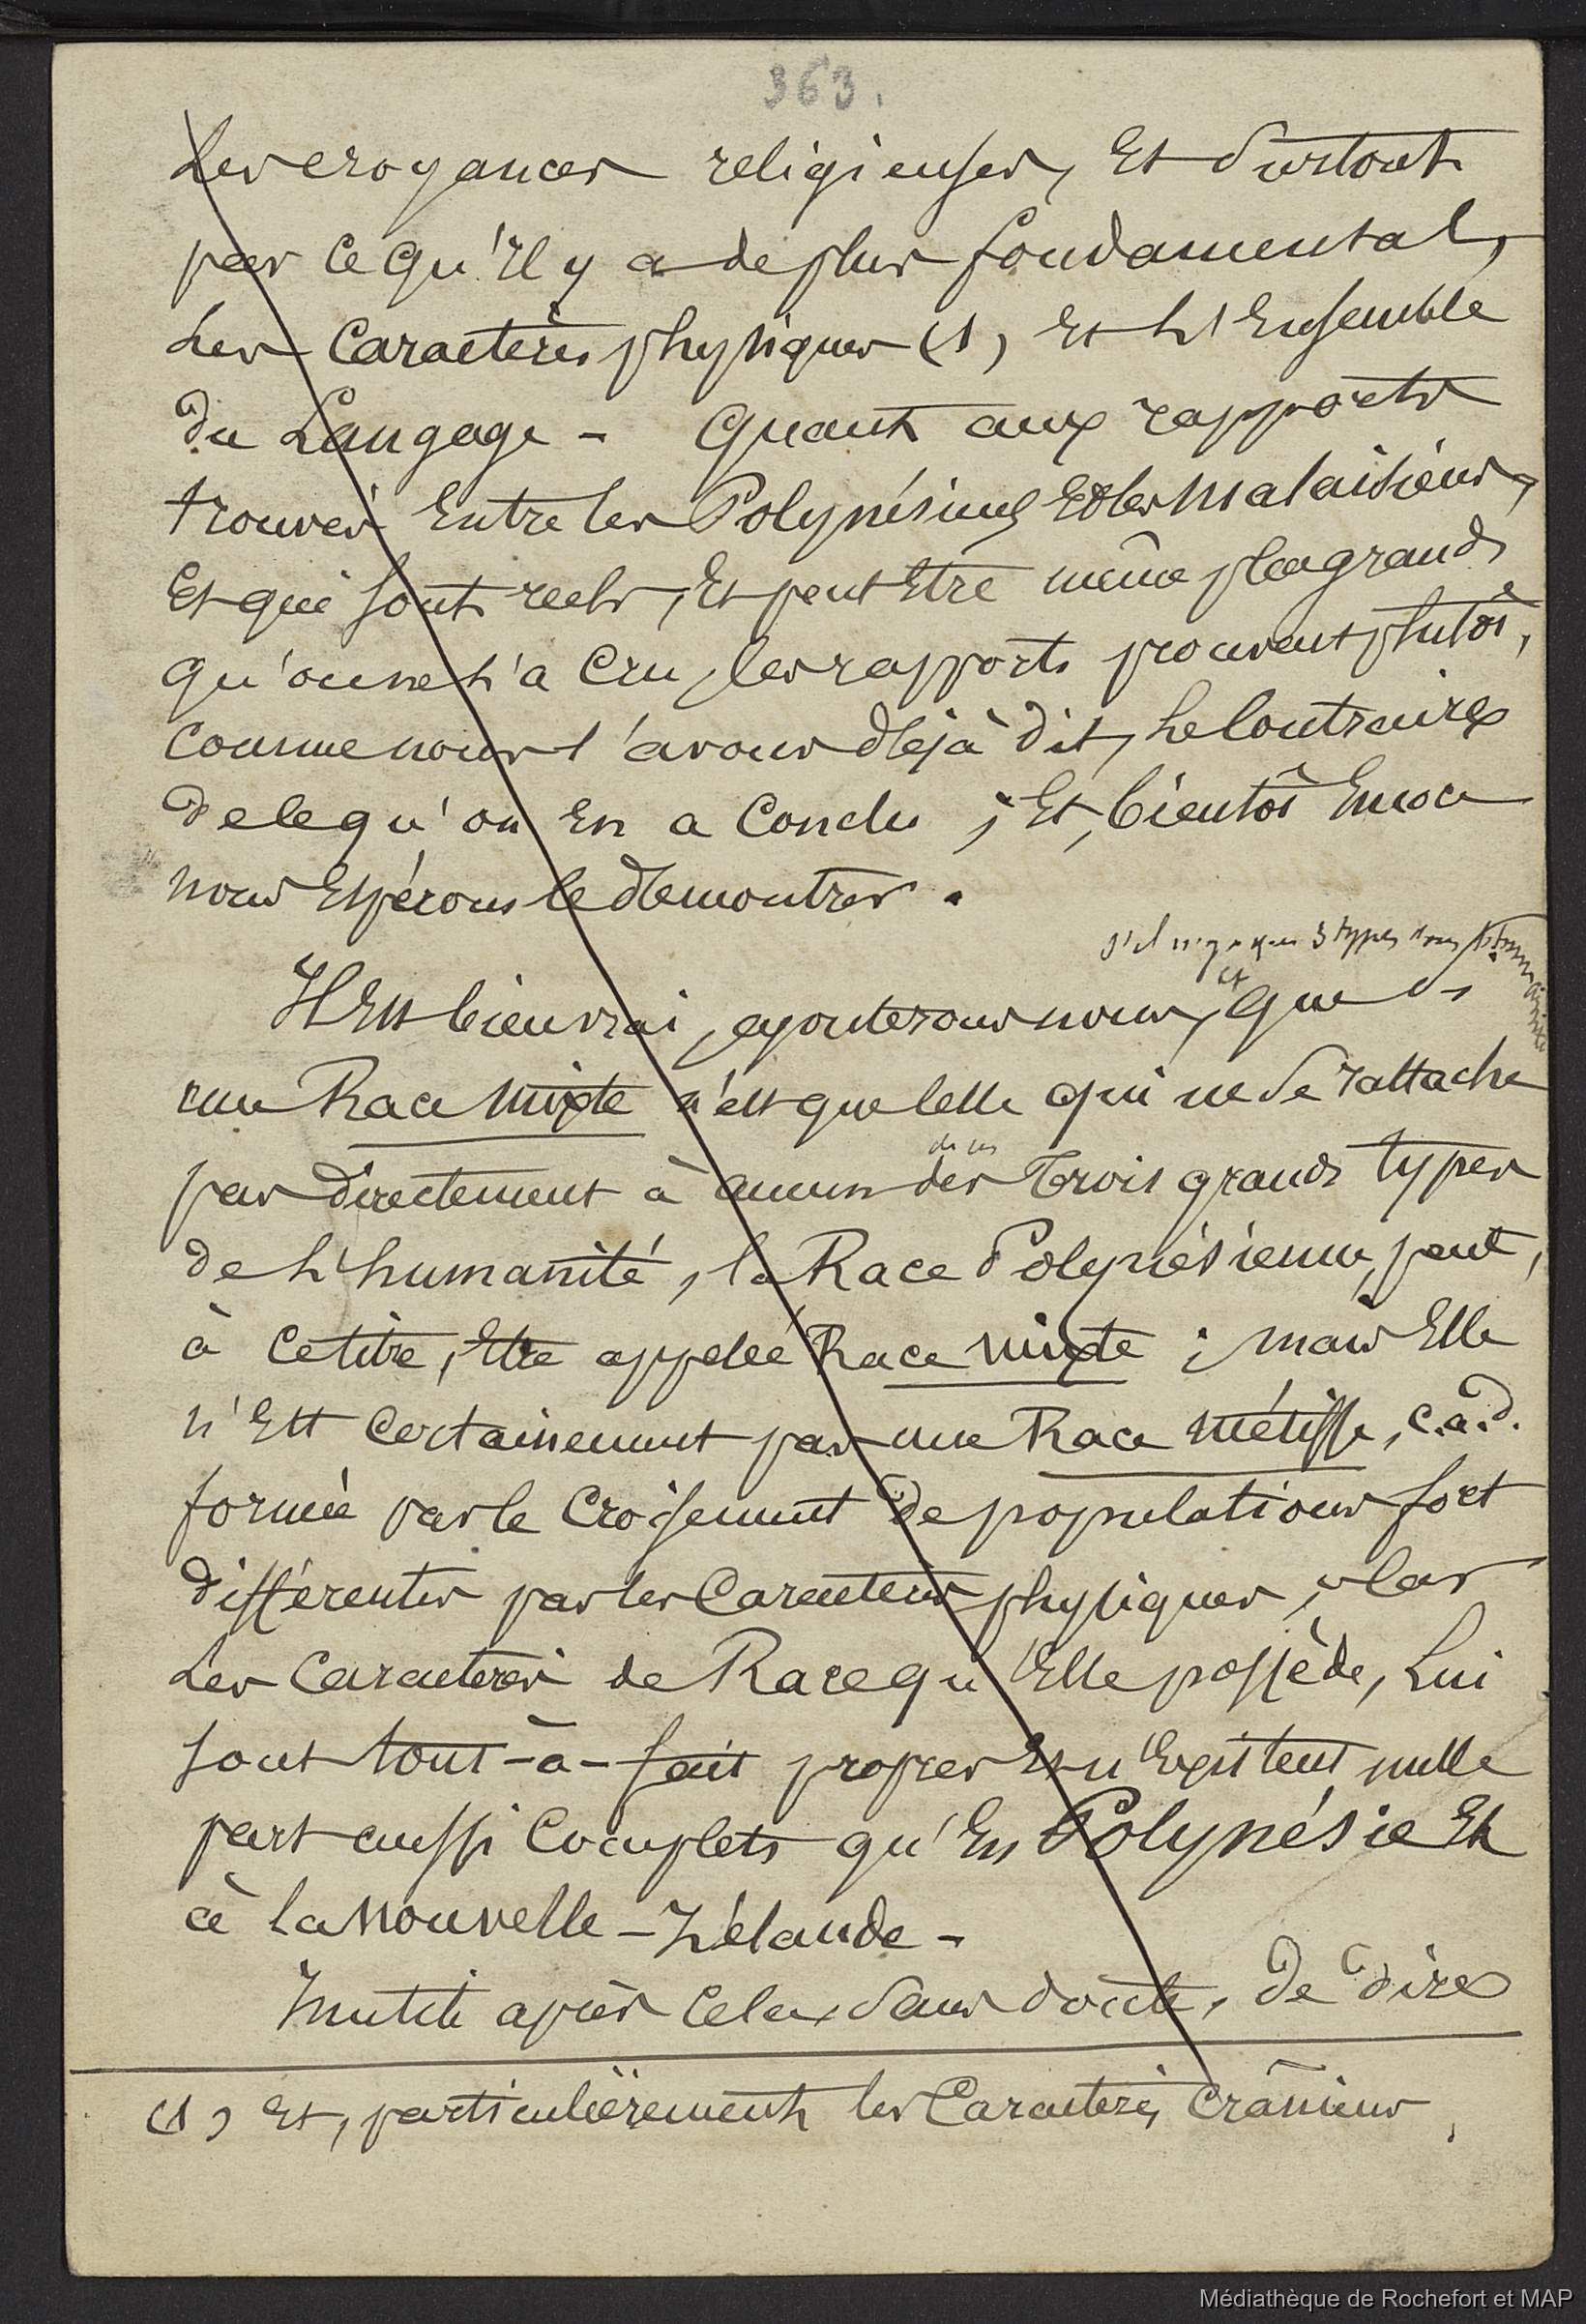 363.
les croyances religieuses, et surtout
par ce qu'il y a de plus fondamental,
les caractères physiques (1), et l'ensemble
du langage - Quant aux rapports
trouvés entre les Polynésiens et les Malaisiens,
et qui sont reels, et peut être même plus grands
qu'on ne l'a cru, les rapports prouvent plutôt,
comme nous l'avons déjà dit, le contraire
de ce qu'on en a conclu ; et, bientôt encore
nous espérons le démontrer.
s'il n'y a que 3 types dans
Il est bien vrai, ajouterons nous, et que si
une Race mixte n'est que celle qui ne se rattache
de ces
pas directement à aucun des trois grands types
de l'humanité, la Race Polynésienne, peut,
à ce titre, être appelée Race mixte ; mais elle
n'est certainement pas une Race métisse, c.a.d.
formée par le croisement de populations fort
différentes par les caractères physiques, car
les caractères de Race qu'elle possède, lui
sont tout-à-fait propres et n'existent nulle
part aussi complets qu'en Polynésie et
à la Nouvelle-Zélande -
Inutile après cela, sans doute, de dire
(1) et, particulièrement les caractères crâniens,
Médiathèque de Rochefort et MAP